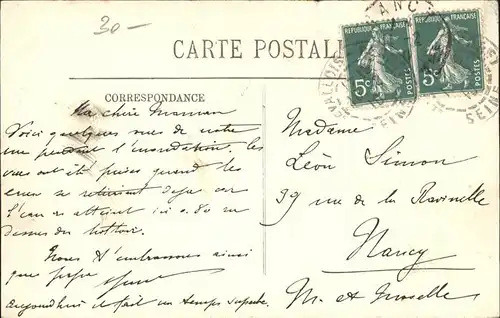 30-
CARTE POSTALE
REPUBLIQUE FRANÇAISE
5c
POSTES
REPUBLIQUE FRANÇAISE
5c
POSTES
SEINE
CORRESPONDANCE
Ma chère Maman
Voici quelques vues de notre
rue pendant l'inondation. Les
vues ont été prises quand les
eaux se retiraient déjà car
l'eau a atteint ici 0.80 au
dessus du trottoir.
Nous t'embrassons ainsi
que papa
aujourd'hui il fait un temps superbe.
Madame
Léon Simon
39 rue de la Ravinelle
Nancy
M. et Moselle